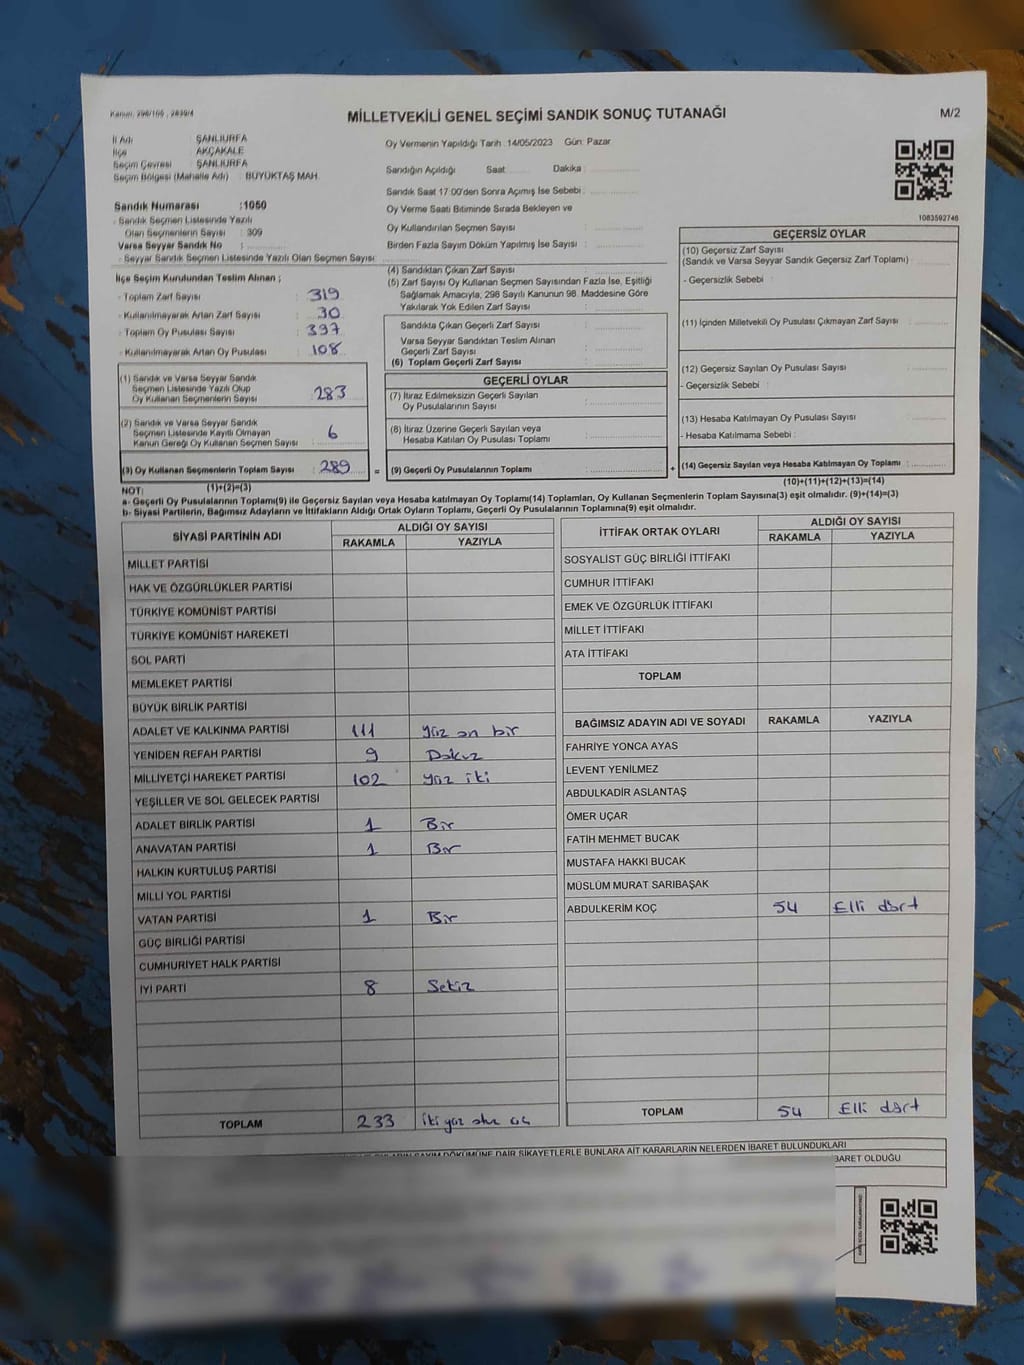 Kanun: 298/105 , 2839/4
MİLLETVEKİLİ GENEL SEÇİMİ SANDIK SONUÇ TUTANAĞI
M/2
İl Adı : ŞANLIURFA
İlçe : AKÇAKALE
Seçim Çevresi : ŞANLIURFA
Seçim Bölgesi (Mahalle Adı) : BÜYÜKTAŞ MAH.
Sandık Numarası :1050
- Sandık Seçmen Listesinde Yazılı
Olan Seçmenlerin Sayısı : 309
Varsa Seyyar Sandık No :
- Seyyar Sandık Seçmen Listesinde Yazılı Olan Seçmen Sayısı :
İlçe Seçim Kurulundan Teslim Alınan ;
- Toplam Zarf Sayısı : 319
- Kullanılmayarak Artan Zarf Sayısı : 30
- Toplam Oy Pusulası Sayısı : 397
- Kullanılmayarak Artan Oy Pusulası : 108
(1) Sandık ve Varsa Seyyar Sandık
Seçmen Listesinde Yazılı Olup
Oy Kullanan Seçmenlerin Sayısı : 283
(2) Sandık ve Varsa Seyyar Sandık
Seçmen Listesinde Kayıtlı Olmayan
Kanun Gereği Oy Kullanan Seçmen Sayısı : 6
(3) Oy Kullanan Seçmenlerin Toplam Sayısı : 289
(1)+(2)=(3)
Oy Vermenin Yapıldığı Tarih :14/05/2023 Gün: Pazar
Sandığın Açıldığı Saat : Dakika :
Sandık Saat 17:00'den Sonra Açılmış İse Sebebi :
Oy Verme Saati Bitiminde Sırada Bekleyen ve
Oy Kullandırılan Seçmen Sayısı :
Birden Fazla Sayım Döküm Yapılmış İse Sayısı :
(4) Sandıktan Çıkan Zarf Sayısı :
(5) Zarf Sayısı Oy Kullanan Seçmen Sayısından Fazla İse, Eşitliği
Sağlamak Amacıyla, 298 Sayılı Kanunun 98. Maddesine Göre
Yakılarak Yok Edilen Zarf Sayısı :
Sandıkta Çıkan Geçerli Zarf Sayısı :
Varsa Seyyar Sandıktan Teslim Alınan
Geçerli Zarf Sayısı :
(6) Toplam Geçerli Zarf Sayısı :
GEÇERLİ OYLAR
(7) İtiraz Edilmeksizin Geçerli Sayılan
Oy Pusulalarının Sayısı :
(8) İtiraz Üzerine Geçerli Sayılan veya
Hesaba Katılan Oy Pusulası Toplamı :
= (9) Geçerli Oy Pusulalarının Toplamı :
1083592746
GEÇERSİZ OYLAR
(10) Geçersiz Zarf Sayısı
(Sandık ve Varsa Seyyar Sandık Geçersiz Zarf Toplamı) :
- Geçersizlik Sebebi :
(11) İçinden Milletvekili Oy Pusulası Çıkmayan Zarf Sayısı :
(12) Geçersiz Sayılan Oy Pusulası Sayısı :
- Geçersizlik Sebebi :
(13) Hesaba Katılmayan Oy Pusulası Sayısı :
- Hesaba Katılmama Sebebi :
+ (14) Geçersiz Sayılan veya Hesaba Katılmayan Oy Toplamı :
(10)+(11)+(12)+(13)=(14)
NOT:
a- Geçerli Oy Pusulalarının Toplamı(9) ile Geçersiz Sayılan veya Hesaba katılmayan Oy Toplamı(14) Toplamları, Oy Kullanan Seçmenlerin Toplam Sayısına(3) eşit olmalıdır. (9)+(14)=(3)
b- Siyasi Partilerin, Bağımsız Adayların ve İttifakların Aldığı Ortak Oyların Toplamı, Geçerli Oy Pusulalarının Toplamına(9) eşit olmalıdır.
SİYASİ PARTİNİN ADI ALDIĞI OY SAYISI
RAKAMLA YAZIYLA
MİLLET PARTİSİ
HAK VE ÖZGÜRLÜKLER PARTİSİ
TÜRKİYE KOMÜNİST PARTİSİ
TÜRKİYE KOMÜNİST HAREKETİ
SOL PARTİ
MEMLEKET PARTİSİ
BÜYÜK BİRLİK PARTİSİ
ADALET VE KALKINMA PARTİSİ 111 yüz on bir
YENİDEN REFAH PARTİSİ 9 Dokuz
MİLLİYETÇİ HAREKET PARTİSİ 102 yüz iki
YEŞİLLER VE SOL GELECEK PARTİSİ
ADALET BİRLİK PARTİSİ 1 Bir
ANAVATAN PARTİSİ 1 Bir
HALKIN KURTULUŞ PARTİSİ
MİLLİ YOL PARTİSİ
VATAN PARTİSİ 1 Bir
GÜÇ BİRLİĞİ PARTİSİ
CUMHURİYET HALK PARTİSİ
İYİ PARTİ 8 Sekiz
TOPLAM 233 iki yüz otuz üç
İTTİFAK ORTAK OYLARI ALDIĞI OY SAYISI
RAKAMLA YAZIYLA
SOSYALİST GÜÇ BİRLİĞİ İTTİFAKI
CUMHUR İTTİFAKI
EMEK VE ÖZGÜRLÜK İTTİFAKI
MİLLET İTTİFAKI
ATA İTTİFAKI
TOPLAM
BAĞIMSIZ ADAYIN ADI VE SOYADI RAKAMLA YAZIYLA
FAHRİYE YONCA AYAS
LEVENT YENİLMEZ
ABDULKADİR ASLANTAŞ
ÖMER UÇAR
FATİH MEHMET BUCAK
MUSTAFA HAKKI BUCAK
MÜSLÜM MURAT SARIBAŞAK
ABDULKERİM KOÇ 54 Elli dört
TOPLAM 54 Elli dört
DÖKÜMÜNE DAİR ŞİKAYETLERLE BUNLARA AİT KARARLARIN NELERDEN İBARET BULUNDUKLARI
BARET OLDUĞU